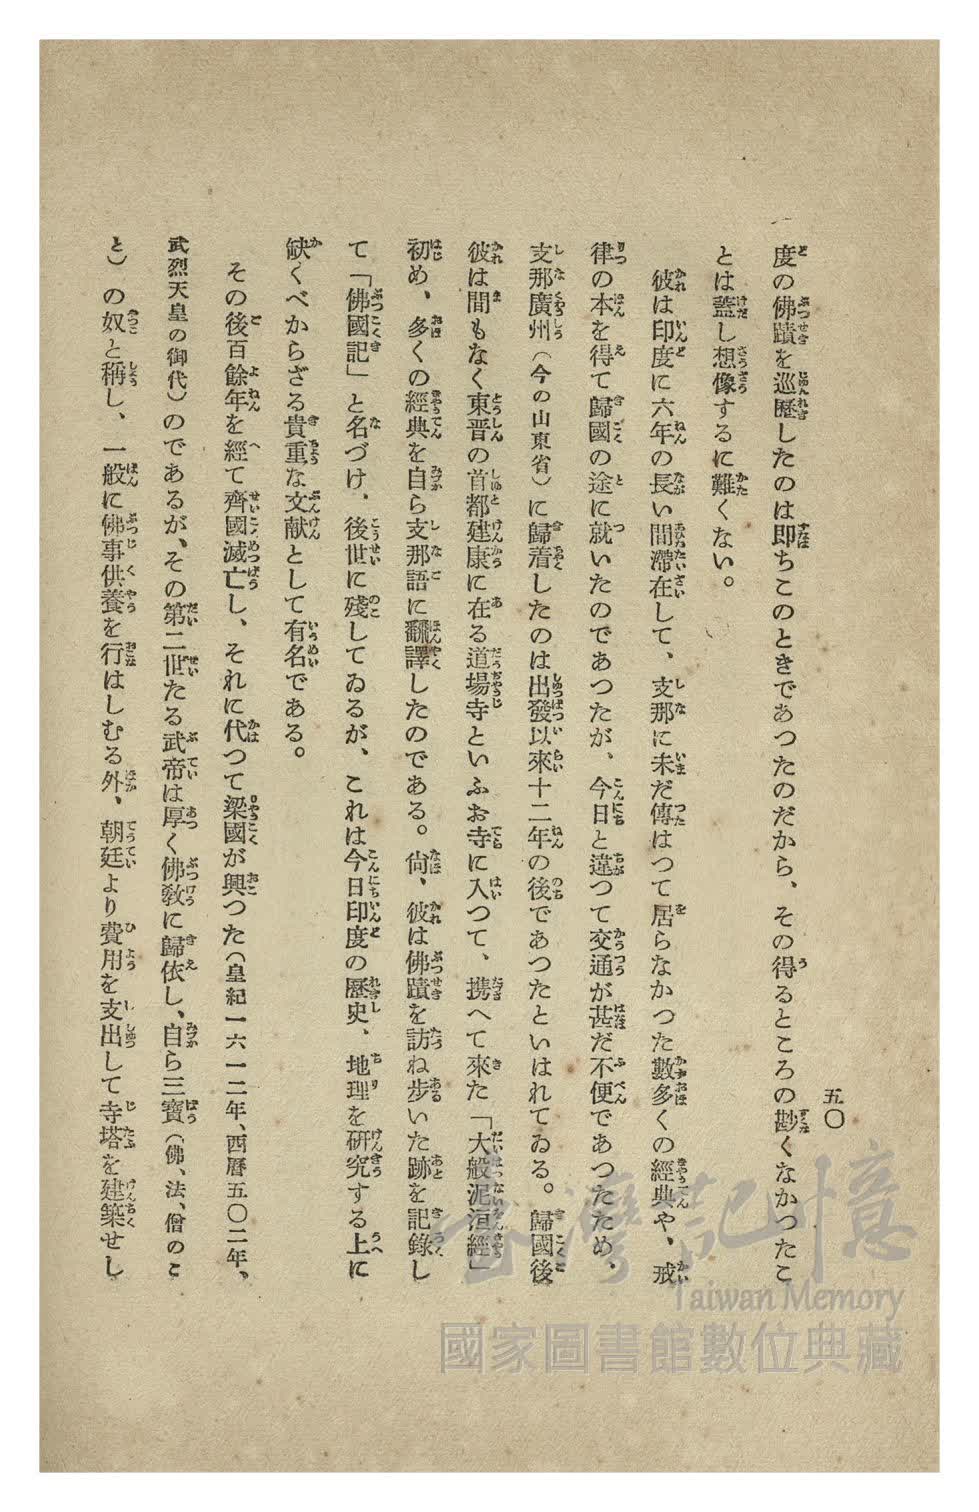 五〇
度の佛蹟を巡歷したのは卽ちこのときであつたのだから、その得るところの尠くなかつたこ
とは蓋し想像するに難くない。
彼は印度に六年の長い間滯在して、支那に未だ傳はつて居らなかつた數多くの經典や、戒
律の本を得て歸國の途に就いたのであつたが、今日と違つて交通が甚だ不便であつたため、
支那廣州（今の山東省）に歸着したのは出發以來十二年の後であつたといはれてゐる。歸國後
彼は間もなく東晋の首都建康に在る道場寺といふお寺に入つて、携へて來た「大般泥洹經」
初め、多くの經典を自ら支那語に飜譯したのである。尙、彼は佛蹟を訪ね步いた跡を記錄し
て「佛國記」と名づけ、後世に殘してゐるが、これは今日印度の歷史、地理を硏究する上に
缺くべからざる貴重な文献として有名である。
その後百餘年を經て齊國滅亡し、それに代つて梁國が興つた（皇紀一六一二年、西曆五〇二年、
武烈天皇の御代）のであるが、その第二世たる武帝は厚く佛敎に歸依し、自ら三寶（佛、法、僧のこ
と）の奴と稱し、一般に佛事供養を行はしむる外、朝廷より費用を支出して寺塔を建築せし
臺灣記憶
Taiwan Memory
國家圖書館數位典藏